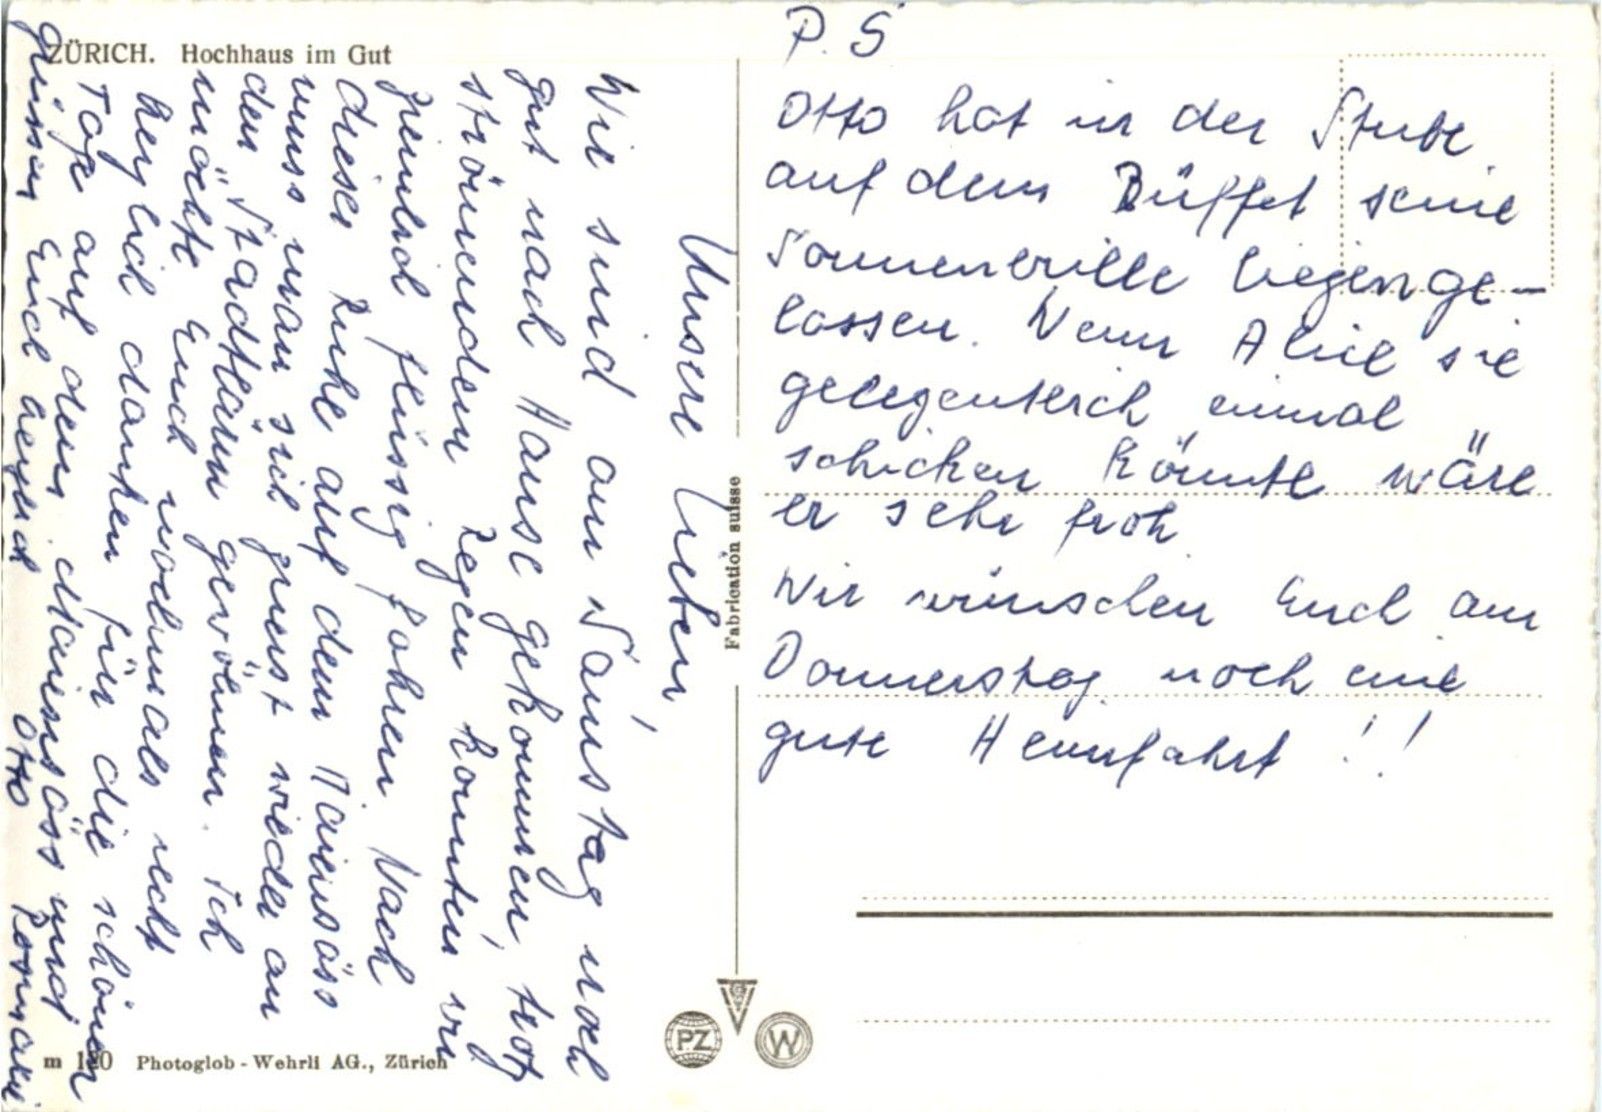 ZÜRICH. Hochhaus im Gut
Unsere Lieben,
Wir sind am Samstag noch
gut nach Hause gekommen, trotz
strömendem Regen konnten wir
ziemlich flüssig fahren. Nach
dieser Ruhe auf dem Maiensäss
muss man sich zuerst wieder an
den Stadtlärm gewöhnen. Ich
möchte Euch nochmals recht
herzlich danken für die schönen
Tage auf dem Maiensäss und
grüssen Euch Otto
P.S
Otto hat in der Stube
auf dem Büffet seine
Sonnenbrille liegenge-
lassen. Wenn Alice sie
gelegentlich einmal
schicken könnte wäre
er sehr froh.
Wir wünschen Euch am
Donnerstag noch eine
gute Heimfahrt !!
Fabrication suisse
PZ
W
m 120 Photoglob-Wehrli AG., Zürich